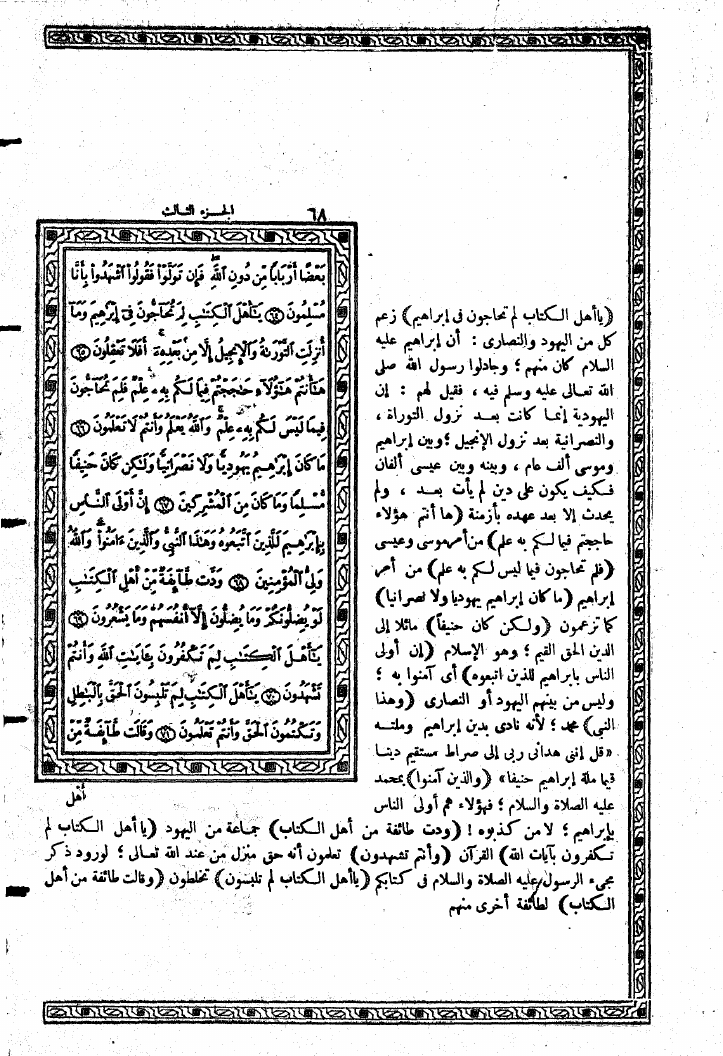 ٦٨ الجزء الثالث
بَعْضًا أَرْبَابًا مِّن دُونِ ٱللَّهِ ۚ فَإِن تَوَلَّوْا۟ فَقُولُوا۟ ٱشْهَدُوا۟ بِأَنَّا
مُسْلِمُونَ ٦٤ يَٰٓأَهْلَ ٱلْكِتَٰبِ لِمَ تُحَآجُّونَ فِىٓ إِبْرَٰهِيمَ وَمَآ
أُنزِلَتِ ٱلتَّوْرَىٰةُ وَٱلْإِنجِيلُ إِلَّا مِنۢ بَعْدِهِۦٓ ۚ أَفَلَا تَعْقِلُونَ ٦٥
هَٰٓأَنتُمْ هَٰٓؤُلَآءِ حَٰجَجْتُمْ فِيمَا لَكُم بِهِۦ عِلْمٌ فَلِمَ تُحَآجُّونَ
فِيمَا لَيْسَ لَكُم بِهِۦ عِلْمٌ ۚ وَٱللَّهُ يَعْلَمُ وَأَنتُمْ لَا تَعْلَمُونَ ٦٦
مَا كَانَ إِبْرَٰهِيمُ يَهُودِيًّا وَلَا نَصْرَانِيًّا وَلَٰكِن كَانَ حَنِيفًا
مُّسْلِمًا وَمَا كَانَ مِنَ ٱلْمُشْرِكِينَ ٦٧ إِنَّ أَوْلَى ٱلنَّاسِ
بِإِبْرَٰهِيمَ لَلَّذِينَ ٱتَّبَعُوهُ وَهَٰذَا ٱلنَّبِىُّ وَٱلَّذِينَ ءَامَنُوا۟ ۗ وَٱللَّهُ
وَلِىُّ ٱلْمُؤْمِنِينَ ٦٨ وَدَّت طَّآئِفَةٌ مِّنْ أَهْلِ ٱلْكِتَٰبِ
لَوْ يُضِلُّونَكُمْ وَمَا يُضِلُّونَ إِلَّآ أَنفُسَهُمْ وَمَا يَشْعُرُونَ ٦٩
يَٰٓأَهْلَ ٱلْكِتَٰبِ لِمَ تَكْفُرُونَ بِـَٔايَٰتِ ٱللَّهِ وَأَنتُمْ
تَشْهَدُونَ ٧٠ يَٰٓأَهْلَ ٱلْكِتَٰبِ لِمَ تَلْبِسُونَ ٱلْحَقَّ بِٱلْبَٰطِلِ
وَتَكْتُمُونَ ٱلْحَقَّ وَأَنتُمْ تَعْلَمُونَ ٧١ وَقَالَت طَّآئِفَةٌ مِّنْ
أَهْلِ
(ياأهل الكتاب لم تحاجون فى إبراهيم) زعم
كل من اليهود والنصارى : أن إبراهيم عليه
السلام كان منهم ؛ وجادلوا رسول الله صلى
الله تعالى عليه وسلم فيه ، فقيل لهم : إن
اليهودية إنما كانت بعد نزول التوراة ،
والنصرانية بعد نزول الإنجيل ؛ وبين إبراهيم
وموسى ألف عام ، وبينه وبين عيسى ألفان
فكيف يكون على دين لم يأت بعد ، ولم
يحدث إلا بعد عهده بأزمنة (ها أنتم هؤلاء
حاججتم فيما لكم به علم) من أمر موسى وعيسى
(فلم تحاجون فيما ليس لكم به علم) من أمر
إبراهيم (ما كان إبراهيم يهوديا ولا نصرانيا)
كما تزعمون (ولكن كان حنيفاً) مائلا إلى
الدين الحق القيم ؛ وهو الإسلام (إن أولى
الناس بإبراهيم للذين اتبعوه) أى آمنوا به ؛
وليس من بينهم اليهود أو النصارى (وهذا
النبي) محمد ؛ لأنه نادى بدين إبراهيم وملته
«قل إننى هدانى ربى إلى صراط مستقيم دينا
قيما ملة إبراهيم حنيفا» (والذين آمنوا) بمحمد
عليه الصلاة والسلام ؛ فهؤلاء هم أولى الناس
بإبراهيم ؛ لا من كذبوه ! (ودت طائفة من أهل الكتاب) جماعة من اليهود (يا أهل الكتاب لم
تكفرون بآيات الله) القرآن (وأنتم تشهدون) تعلمون أنه حق منزل من عند الله تعالى ؛ لورود ذكر
مجىء الرسول عليه الصلاة والسلام فى كتابكم (ياأهل الكتاب لم تلبسون) تخلطون (وقالت طائفة من أهل
الكتاب) لطائفة أخرى منهم